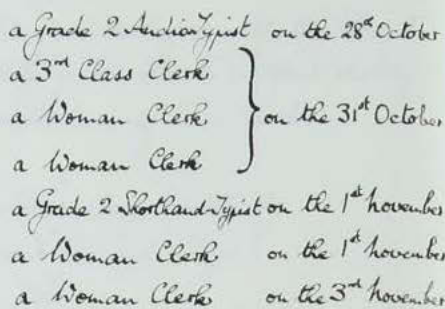 a Grade 2 Audio-Typist on the 28st October
a 3rd Class Clerk
a Woman Clerk on the 31st October
a Woman Clerk
a Grade 2 Shorthand-Typist on the 1st November
a Woman Clerk on the 1st November
a Woman Clerk on the 3rd November